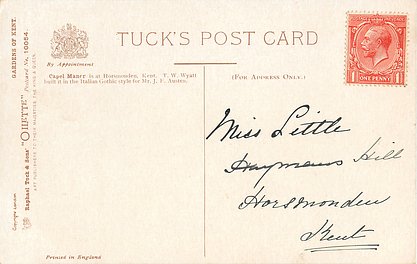 TUCK'S POST CARD
By Appointment
Capel Manor is at Horsmonden, Kent. T. W. Wyatt
built it in the Italian Gothic style for Mr. J. F. Austen.
(FOR ADDRESS ONLY.)
POSTAGE REVENUE
1 ONE PENNY 1
Miss Little
Haymans Hill
Horsmonden
Kent
GARDENS OF KENT.
Raphael Tuck & Sons' "OILETTE" Postcard No. 10054.
ART PUBLISHERS TO THEIR MAJESTIES THE KING & QUEEN.
Copyright London
Printed in England